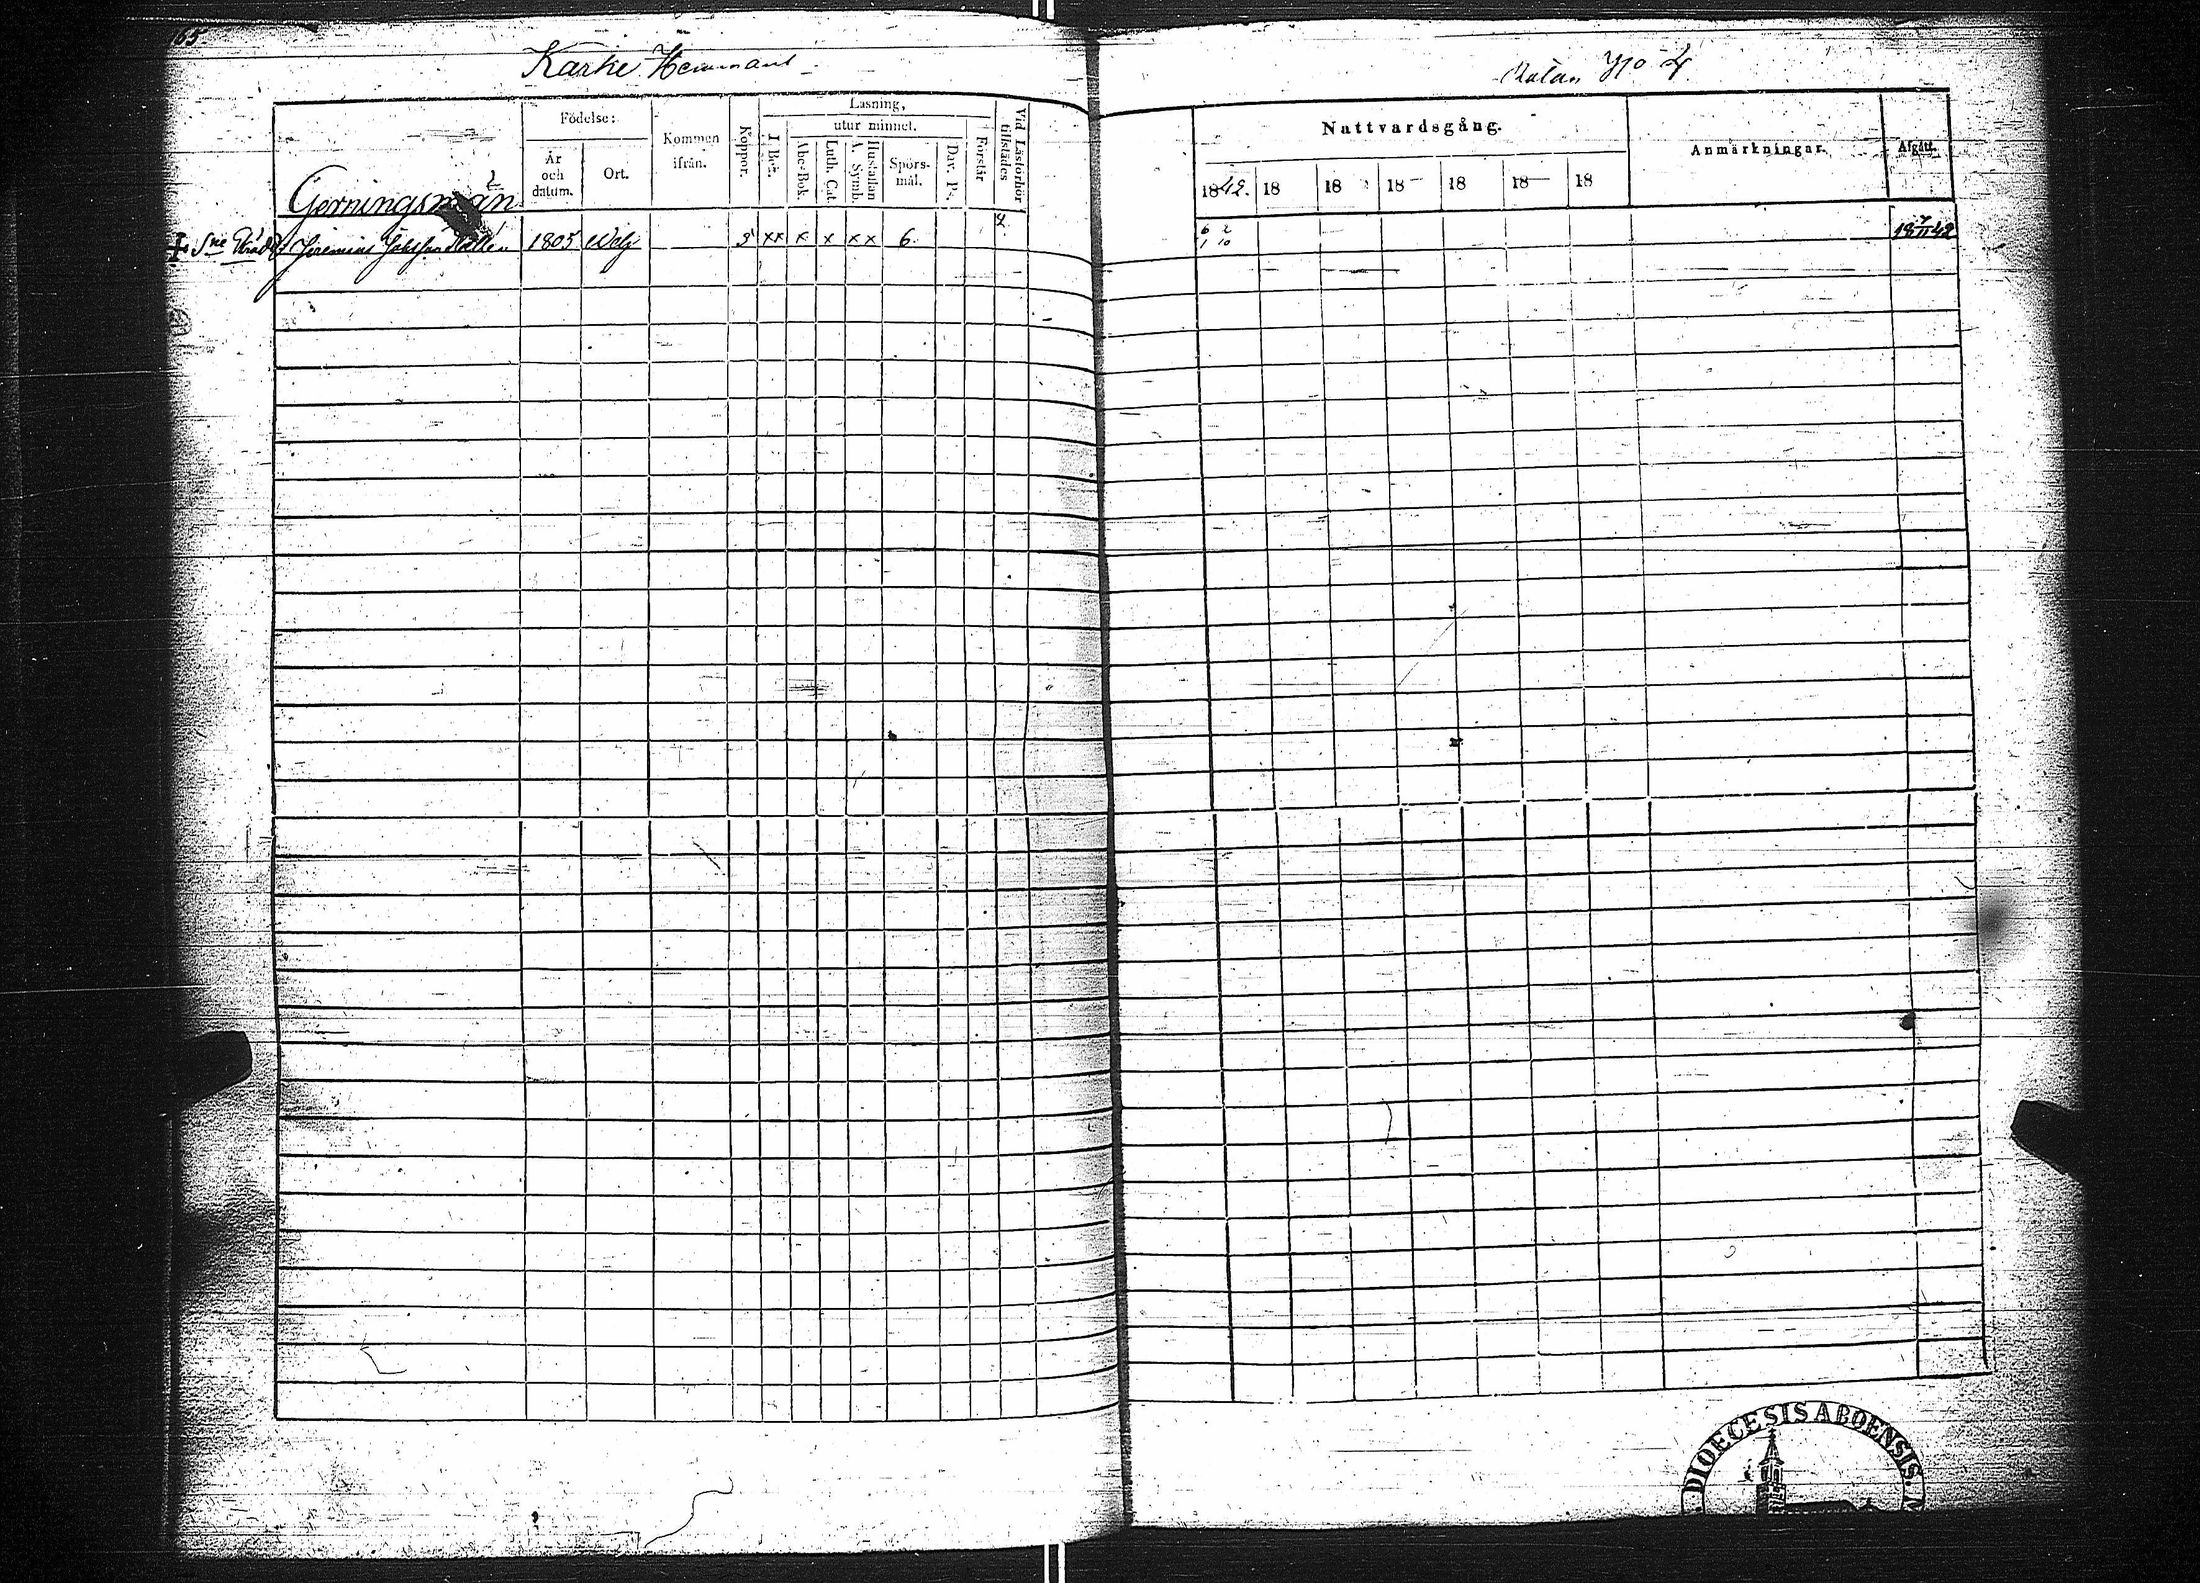 165
Karke Hemman
Rotan No 4
Födelse:
År och datum.
Ort.
Kommen ifrån.
Koppor.
Läsning,
I Bok.
utur minnet.
Abc-Bok.
Luth. Cat.
Hustaflan A. Symb.
Spörs-mål.
Dav. Ps.
Förstår
Vid Läsförhör tillstädes
Nattvardsgång.
1842. 18 18 18 18 18 18
Anmärkningar.
Afgått.
Gerningsmän
Jeremias 1805 s xx x x xx 6
6 2
1 10
18 7/11 42
DIOECESIS ABOENSIS.